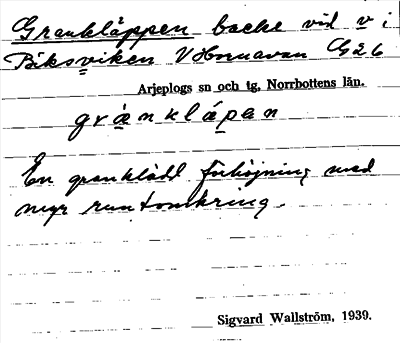 Grankläppen backe vid v i
Biksviken V Hornavan G26
Arjeplogs sn och tg, Norrbottens län.
gränkläpan
En granklädd förhöjning med
myr runtomkring.
Sigvard Wallström, 1939.